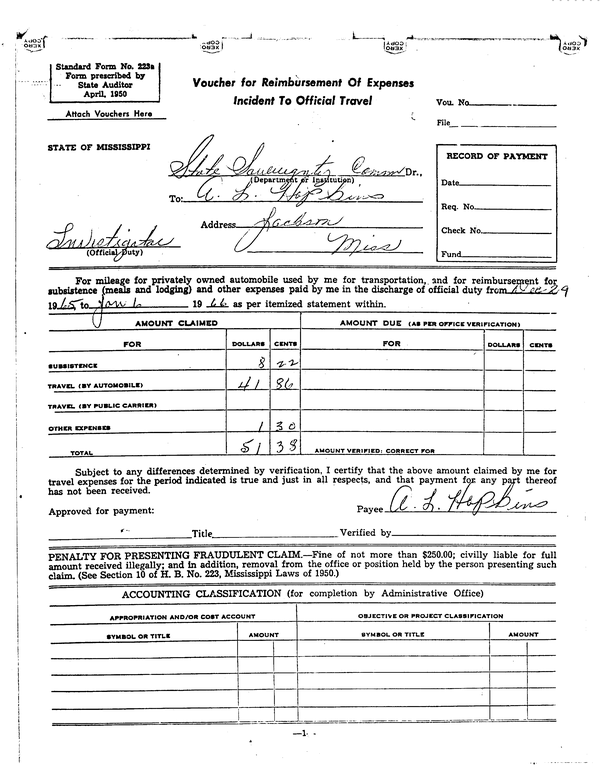 XEROX COPY XEROX COPY XEROX COPY XEROX COPY
Standard Form No. 223a
Form prescribed by
State Auditor
April, 1950
Attach Vouchers Here
Voucher for Reimbursement Of Expenses
Incident To Official Travel
Vou. No.
File
STATE OF MISSISSIPPI
State Sovereignty Comm Dr.,
(Department or Institution)
To: A. L. Hopkins
Address Jackson
Miss
Investigator
(Official Duty)
RECORD OF PAYMENT
Date
Req. No.
Check No.
Fund
For mileage for privately owned automobile used by me for transportation, and for reimbursement for
subsistence (meals and lodging) and other expenses paid by me in the discharge of official duty from Dec 29
1965 to Jan 6 1966 as per itemized statement within.
AMOUNT CLAIMED AMOUNT DUE (AS PER OFFICE VERIFICATION)
FOR DOLLARS CENTS FOR DOLLARS CENTS
SUBSISTENCE 8 22
TRAVEL (BY AUTOMOBILE) 41 86
TRAVEL (BY PUBLIC CARRIER)
OTHER EXPENSES 1 30
TOTAL 51 38 AMOUNT VERIFIED: CORRECT FOR
Subject to any differences determined by verification, I certify that the above amount claimed by me for
travel expenses for the period indicated is true and just in all respects, and that payment for any part thereof
has not been received.
Approved for payment: Payee A. L. Hopkins
Title Verified by
PENALTY FOR PRESENTING FRAUDULENT CLAIM.—Fine of not more than $250.00; civilly liable for full
amount received illegally; and in addition, removal from the office or position held by the person presenting such
claim. (See Section 10 of H. B. No. 223, Mississippi Laws of 1950.)
ACCOUNTING CLASSIFICATION (for completion by Administrative Office)
APPROPRIATION AND/OR COST ACCOUNT OBJECTIVE OR PROJECT CLASSIFICATION
SYMBOL OR TITLE AMOUNT SYMBOL OR TITLE AMOUNT
—1—